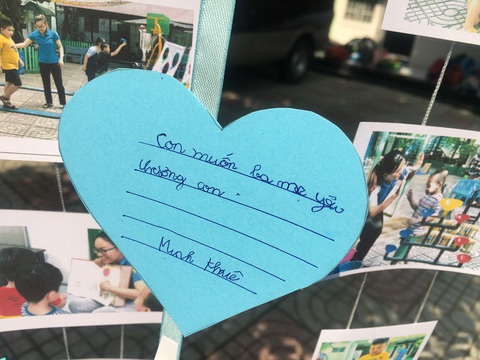 Con muốn ba mẹ yêu
thương con.
Minh Khuê